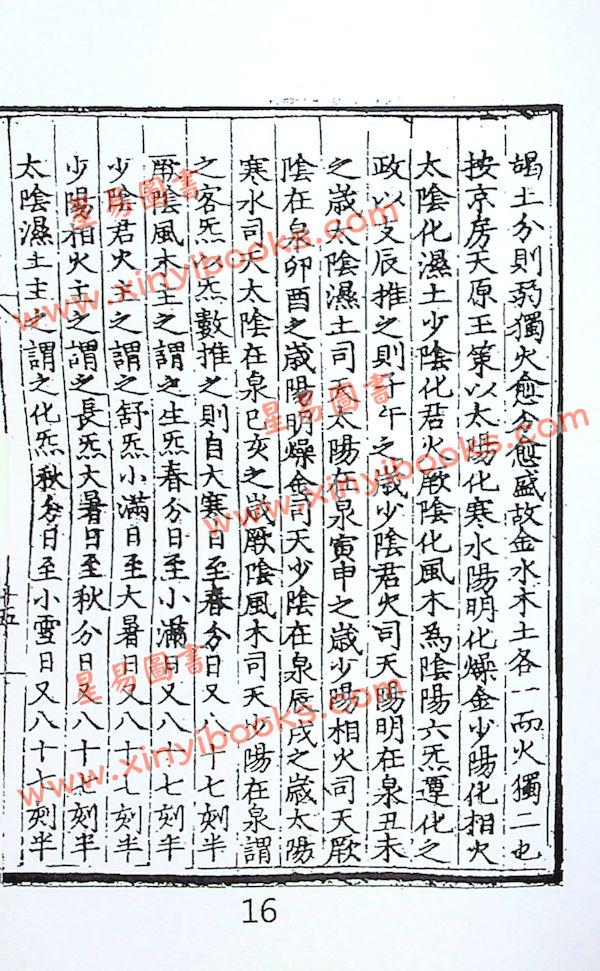 竭土分則弱獨火愈分愈盛故金水木土各一而火獨二也
按京房天原玉策以太陽化寒水陽明化燥金少陽化相火
太陰化濕土少陰化君火厥陰化風木為陰陽六炁遵化之
政以支辰推之則子午之歲少陰君火司天陽明在泉丑未
之歲太陰濕土司天太陽在泉寅申之歲少陽相火司天厥
陰在泉卯酉之歲陽明燥金司天少陰在泉辰戌之歲太陽
寒水司天太陰在泉巳亥之歲厥陰風木司天少陽在泉謂
之客炁以炁數推之則自大寒日至春分日又八十七刻半
厥陰風木主之謂之生炁春分日至小滿日又八十七刻半
少陰君火主之謂之舒炁小滿日至大暑日又八十七刻半
少陽相火主之謂之長炁大暑日至秋分日又八十七刻半
太陰濕土主之謂之化炁秋分日至小雪日又八十七刻半
十五
16
星易圖書
www.xinyibooks.com
星易圖書
www.xinyibooks.com
星易圖書
www.xinyibooks.com